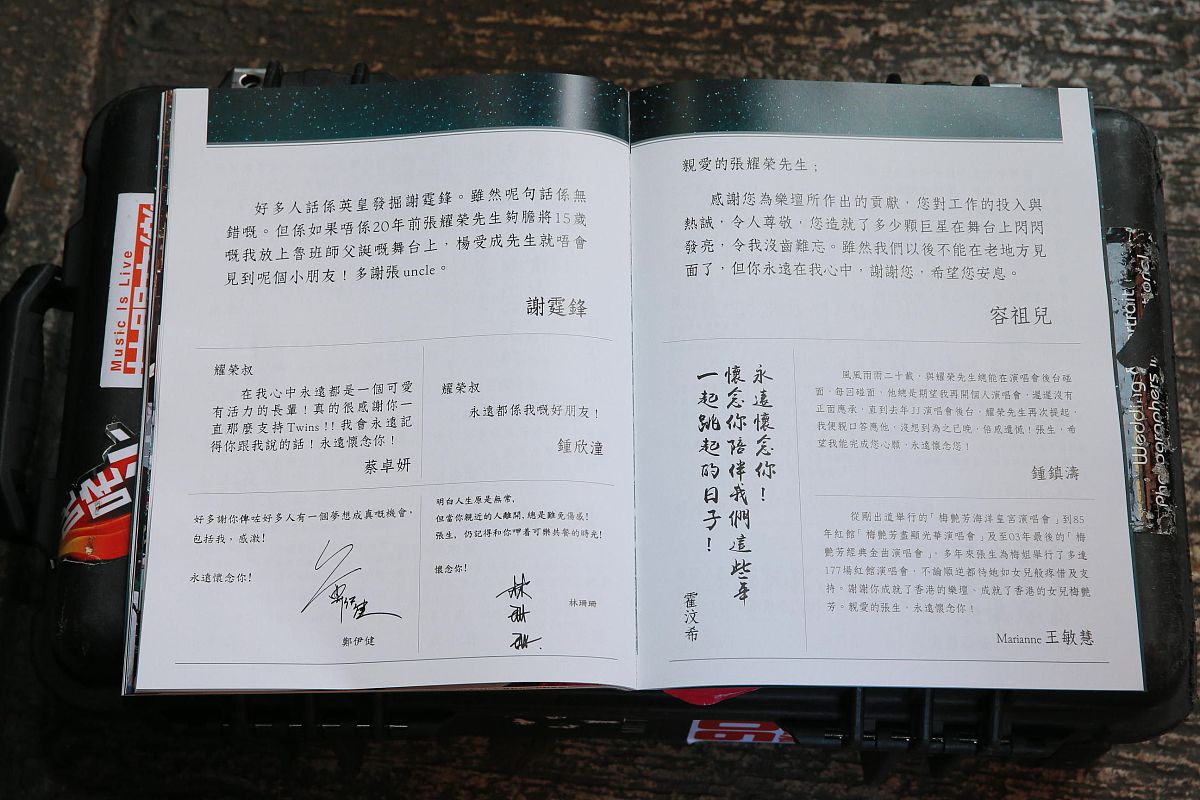 好多人話係英皇發掘謝霆鋒。雖然呢句話係無
錯嘅。但係如果唔係20年前張耀榮先生夠膽將15歲
嘅我放上魯班師父誕嘅舞台上，楊受成先生就唔會
見到呢個小朋友！多謝張uncle。
謝霆鋒
耀榮叔
在我心中永遠都是一個可愛
有活力的長輩！真的很感謝你一
直那麼支持Twins!!我會永遠記
得你跟我說的話！永遠懷念你！
蔡卓妍
耀榮叔
永遠都係我嘅好朋友！
鍾欣潼
好多謝你俾咗好多人有一個夢想成真嘅機會，
包括我，感激！
永遠懷念你！
鄭伊健
明白人生原是無常，
但當你親近的人離開，總是難免傷感！
張生，仍記得和你呷着可樂共餐的時光！
懷念你！
林珊珊
林珊珊
親愛的張耀榮先生；
感謝您為樂壇所作出的貢獻，您對工作的投入與
熱誠，令人尊敬，您造就了多少顆巨星在舞台上閃閃
發亮，令我沒齒難忘。雖然我們以後不能在老地方見
面了，但你永遠在我心中，謝謝您，希望您安息。
容祖兒
永遠懷念你！
懷念你陪伴我們這些年
一起跳起的日子！
霍汶希
風風雨雨二十載，與耀榮先生總能在演唱會後台碰
面，每回碰面，他總是期望我再開個人演唱會，遲遲沒有
正面應承，直到去年JJ演唱會後台，耀榮先生再次提起，
我便親口答應他，沒想到為之已晚，倍感遺憾！張生，希
望我能完成您心願，永遠懷念您！
鍾鎮濤
從剛出道舉行的「梅艷芳海洋皇宮演唱會」到85
年紅館「梅艷芳盡顯光華演唱會」及至03年最後的「梅
艷芳經典金曲演唱會」，多年來張生為梅姐舉行了多達
177場紅館演唱會，不論順逆都待她如女兒般疼惜及支
持。謝謝你成就了香港的樂壇、成就了香港的女兒梅艷
芳。親愛的張生，永遠懷念你！
Marianne 王敏慧
Music Is Live
" Wedding
Photographers "